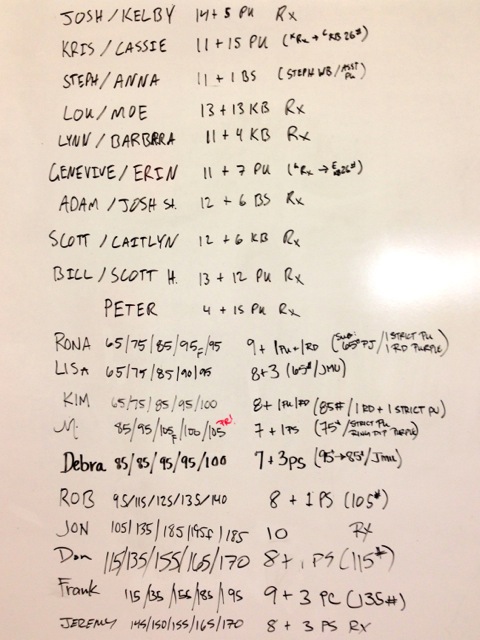 JOSH/KELBY 14+5 PU Rx
KRIS/CASSIE 11+15 PU (KRx + CKB 26#)
STEPH/ANNA 11+1 BS (STEPH WB/ASST PU)
LOU/MOE 13+13 KB Rx
LYNN/BARBARA 11+4 KB Rx
GENEVIVE/ERIN 11+7 PU (GRx → E 26#)
ADAM/JOSH St. 12+6 BS Rx
SCOTT/CAITLYN 12+6 KB Rx
BILL/SCOTT H. 13+12 PU Rx
PETER 4+15 PU Rx
RONA 65/75/85/95F/95 9+1PU+1RD (65# PJ/1 STRICT PU/1 RD PURPLE)
LISA 65/75/85/90/95 8+3 (65#/JMU)
KIM 65/75/85/95/100 8+1PU/RD (85#/1RD+1 STRICT PU)
M 85/95/105F/100/105 PR! 7+1PS (75#/STRICT PU/RING DIP PURPLE)
Debra 85/85/95/95/100 7+3PS (95→85#/JMU)
ROB 95/115/125/135/140 8+1PS (105#)
JON 105/135/185/195F/185 10 Rx
Dan 115/135/155/165/170 8+1 PS (115#)
Frank 115/135/155/185/195 9+3 PC (135#)
JEREMY 145/150/155/165/170 8+3 PS RX